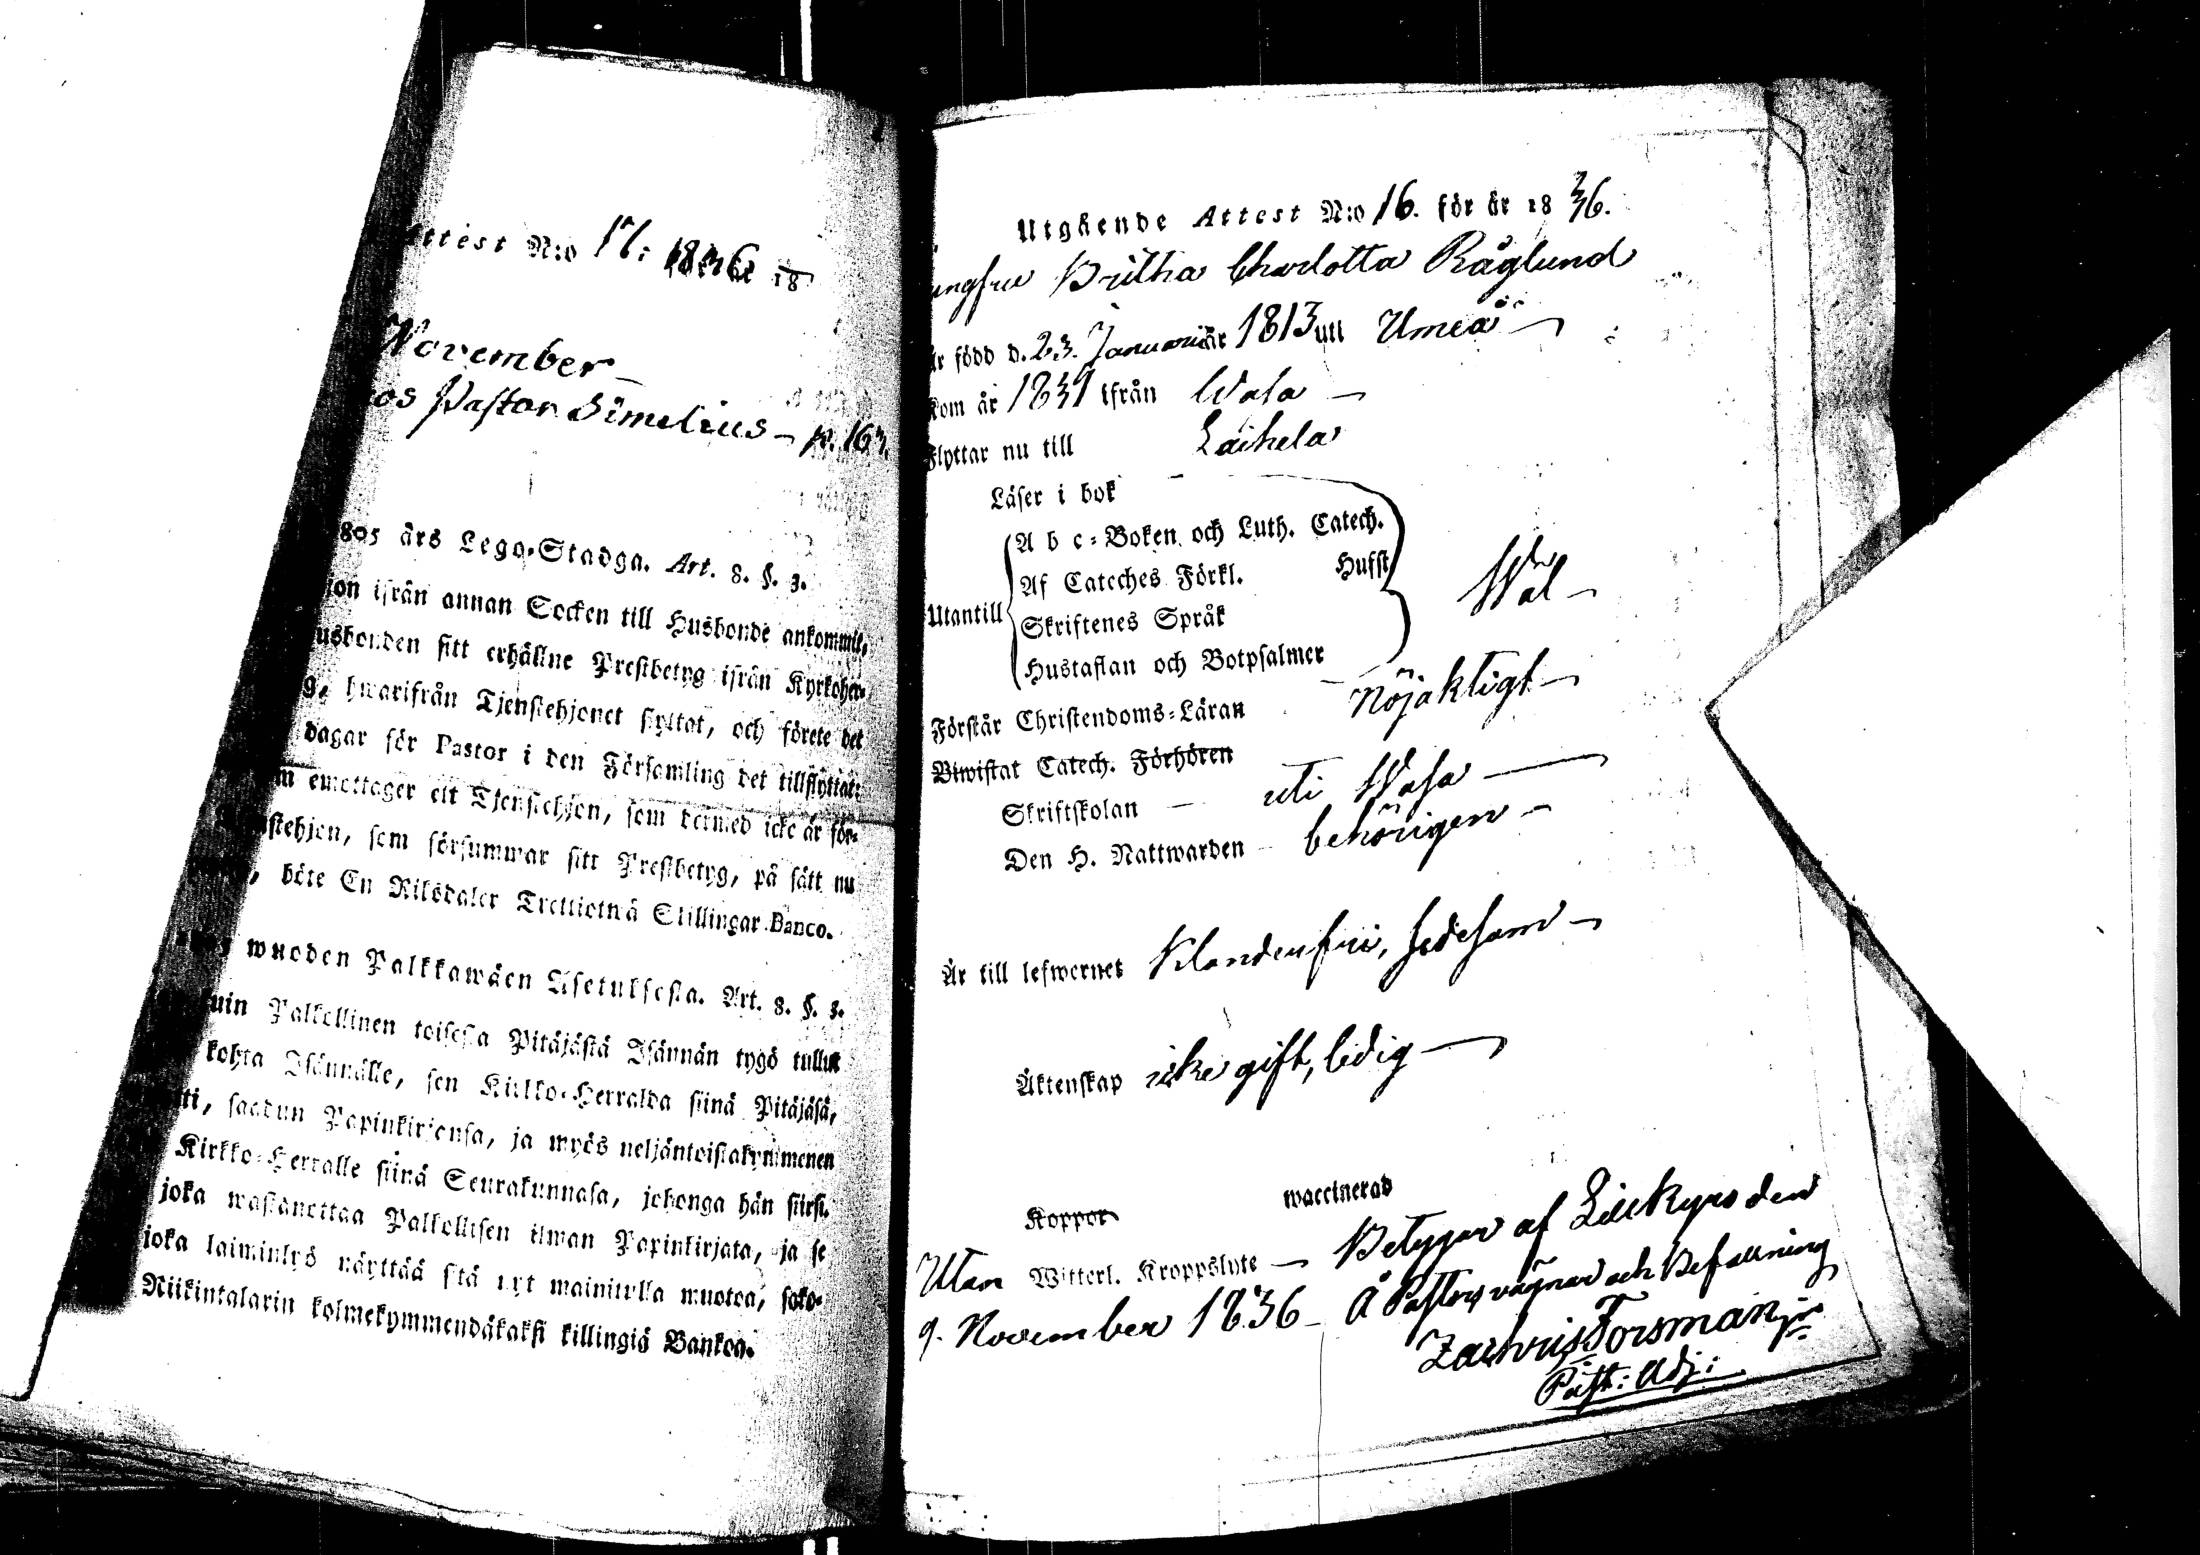 ttest N:o 17: 1836 18
November
os Pastor Simelius – p. 163.
805 års Lego-Stadga. Art. 8. §. 3.
jon ifrån annan Socken till Husbonde ankommit,
usbonden sitt erhållne Prestbetyg ifrån Kyrkoher-
g, hwarifrån Tjenstehjonet flyttat, och förete det
dagar för Pastor i den Församling det tillflyttat:
m emottager ett Tjenstehjon, som dermed icke är för-
stehjon, som försummar sitt Prestbetyg, på sätt nu
, böte En Riksdaler Trettiotwå Skillingar Banco.
wuoden Palkkawäen Asetuksesta. Art. 8. §. 3.
uin Palkollinen toisesta Pitäjästä Isännän tygö tullut
kohta Isännälle, sen Kirkko-Herralda siinä Pitäjäsä,
ti, saadun Papinkirjansa, ja myös neljäntoistakymmenen
Kirkko-Herralle siinä Seurakunnasa, johonga hän siirsi.
joka wastanottaa Palkollisen ilman Papinkirjata, ja se
joka laiminlyö näyttää sitä nyt mainitulla muotoa, sako-
Riikintalarin kolmekymmendäkaksi killingiä Bankoa.
Utgående Attest N:o 16. för år 18 36.
ungfru Britha Charlotta Råglund
är född d. 23. Januari år 1813 uti Umeå –
Kom år 1831 ifrån Wasa –
Flyttar nu till Laihela
Läser i bok
A b c-Boken och Luth. Catech.
Af Cateches Förkl. Husst
Utantill
Skriftenes Språk
Wäl –
Hustaflan och Botpsalmer
Förstår Christendoms-Läran nöjaktigt –
Biwistat Catech. Förhören
Skriftskolan – uti Wasa –
Den H. Nattwarden – behörigen –
Är till lefwernet Klanderfri, sedesam –
Äktenskap icke gift, ledig –
Koppor waccinerad
Utan Witterl. Kroppslyte – Betygar af Lillkyro den
9. November 1836 – Å Pastors vägnar och Befallning
Zachris Forsman jr
Past: Adj: